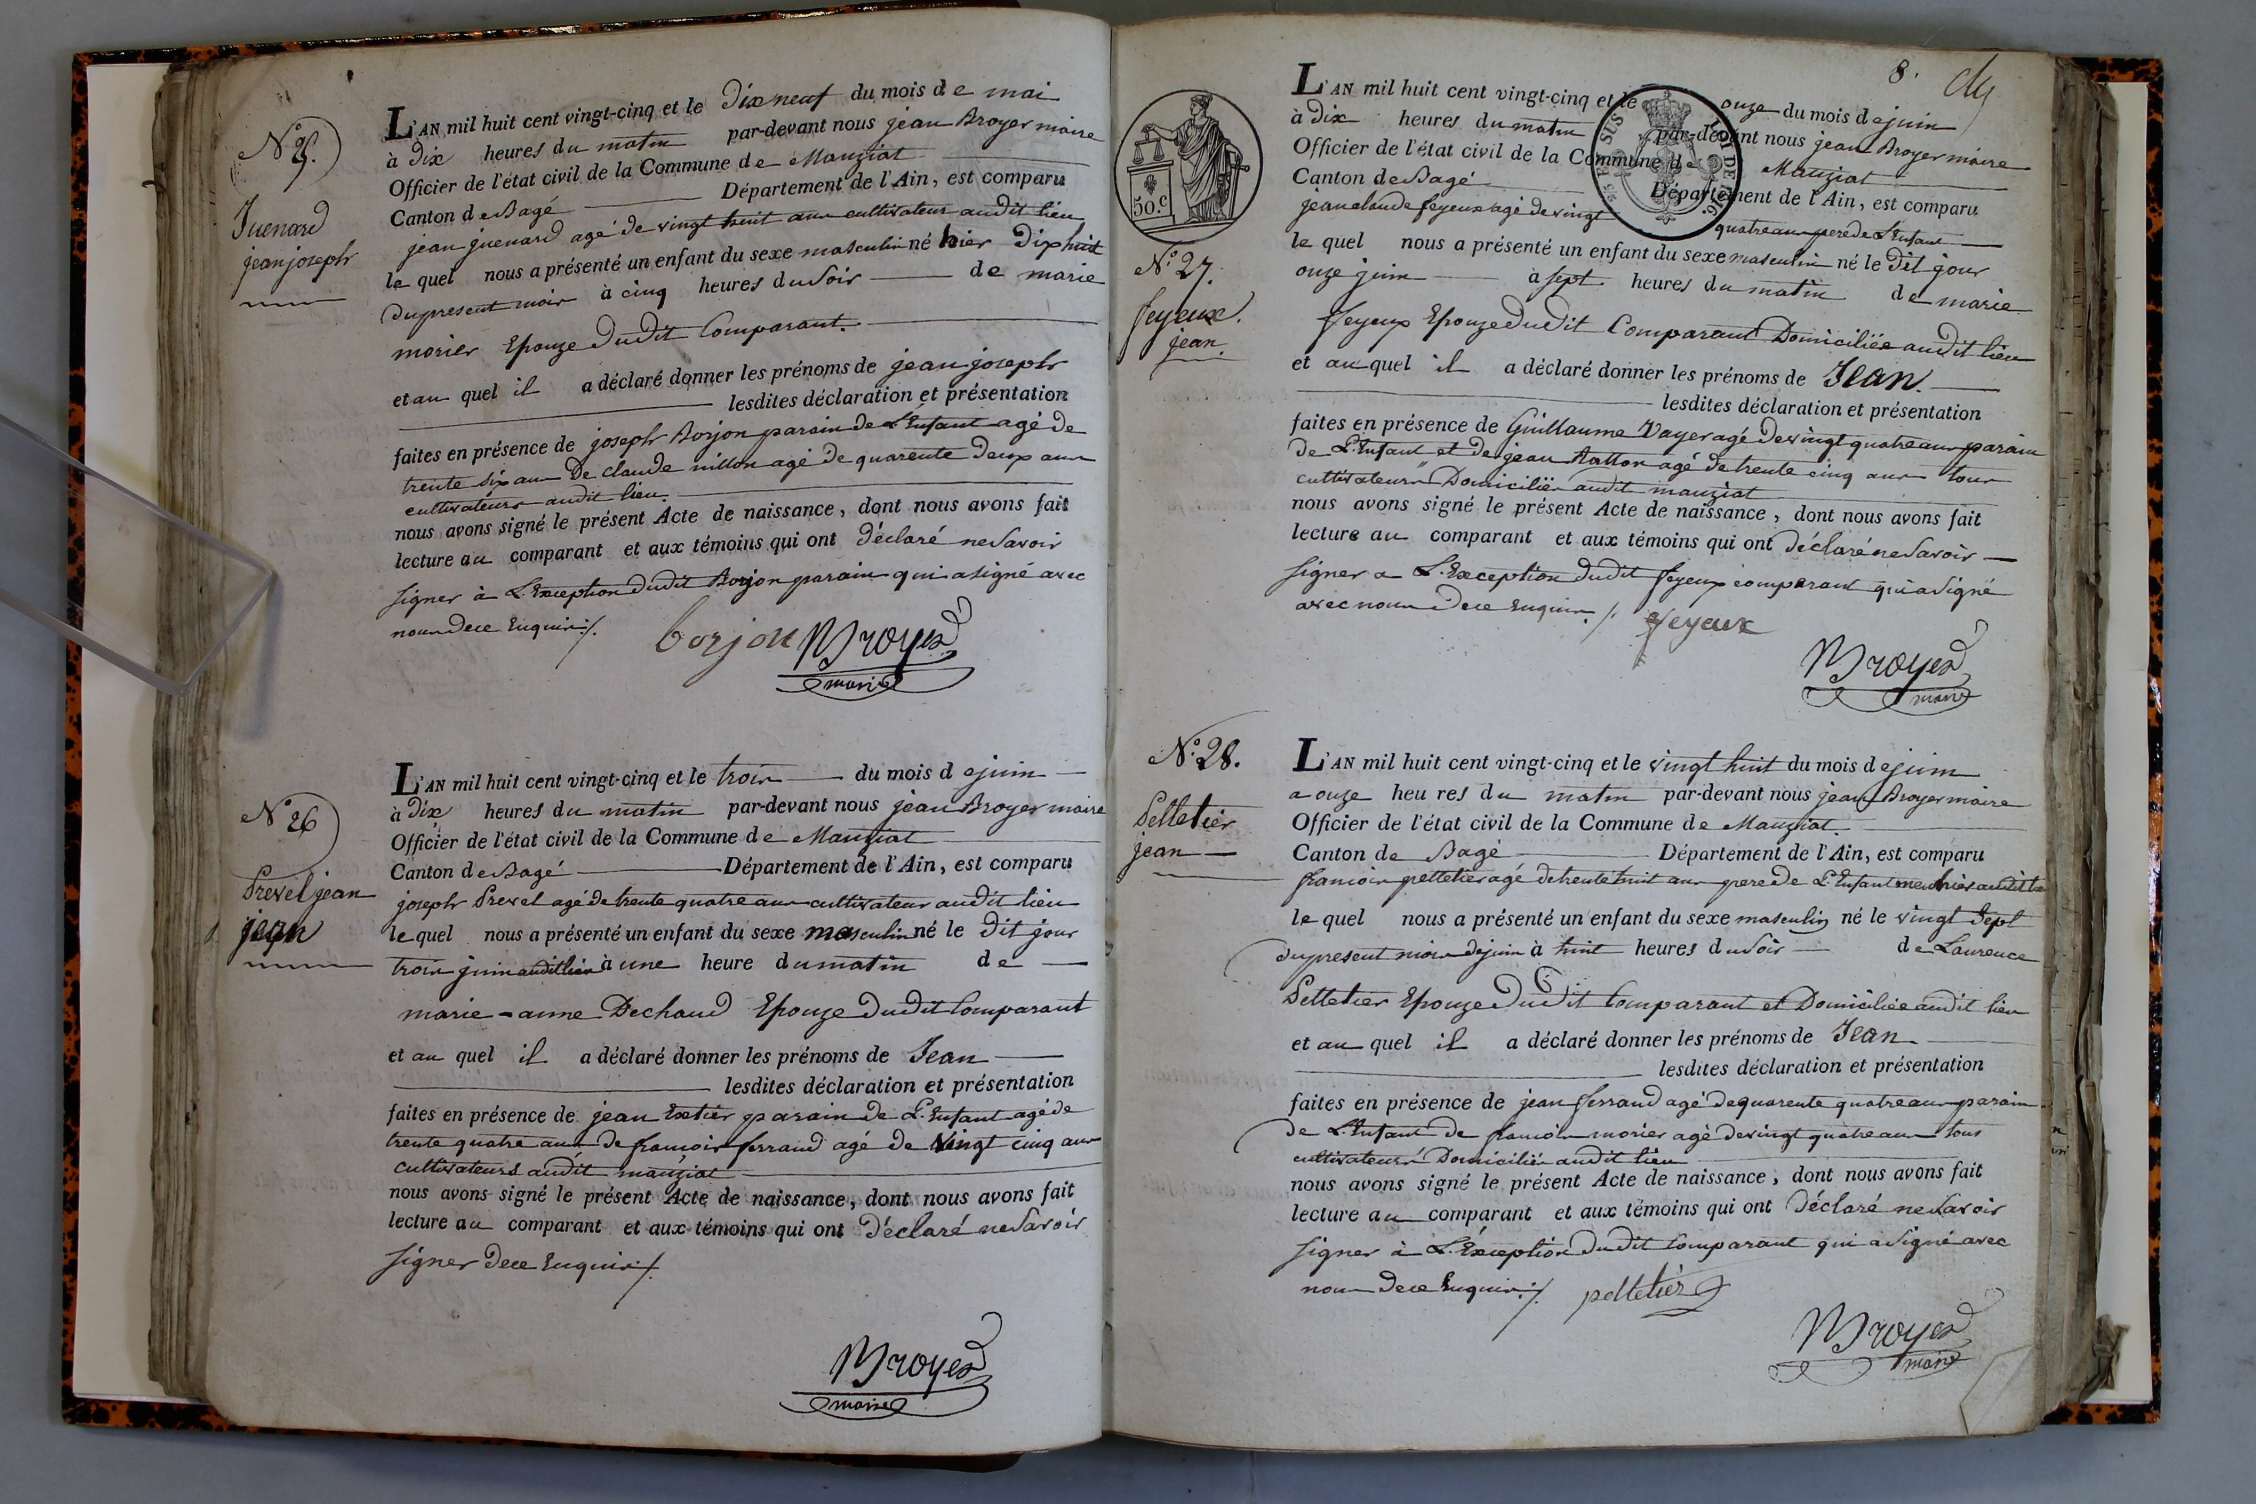 N° 25.
Juenard
jean joseph
L'AN mil huit cent vingt-cinq et le Dix neuf du mois de mai
à Dix heures du matin par-devant nous jean Broyer maire
Officier de l'état civil de la Commune de Manziat
Canton de Bagé Département de l'Ain, est comparu
jean juenard agé de vingt huit ans cultivateur audit lieu
le quel nous a présenté un enfant du sexe masculin né hier Dix huit
du present mois à cinq heures du soir de marie
morier Epouze Dudit Comparant.
et au quel il a déclaré donner les prénoms de jean joseph
lesdites déclaration et présentation
faites en présence de joseph Borjon parain de L'Enfant agé de
trente six ans De claude nillon agé de quarente Deux ans
cultivateurs audit lieu.
nous avons signé le présent Acte de naissance, dont nous avons fait
lecture au comparant et aux témoins qui ont Déclaré ne Savoir
signer à L'Exception dudit Borjon parain qui a signé avec
nous Dece Enquis ./.
borjon Broyer
maire
N° 26
Prevel jean
jean
L'AN mil huit cent vingt-cinq et le trois du mois de juin
à Dix heures du matin par-devant nous jean Broyer maire
Officier de l'état civil de la Commune de Manziat
Canton de Bagé Département de l'Ain, est comparu
joseph Prevel agé de trente quatre ans cultivateur audit lieu
le quel nous a présenté un enfant du sexe masculin né le Dit jour
trois juin audit lieu à une heure du matin de
marie-anne Dechaud Epouze Dudit Comparant
et au quel il a déclaré donner les prénoms de Jean
lesdites déclaration et présentation
faites en présence de jean Exetier parain de L'Enfant agé de
trente quatre ans de francois ferrand agé de vingt cinq ans
cultivateurs audit manziat
nous avons signé le présent Acte de naissance, dont nous avons fait
lecture au comparant et aux témoins qui ont Déclaré ne Savoir
signer Dece Enquis ./.
Broyer
maire
8.
50.c
N° 27.
feyeux.
jean.
L'AN mil huit cent vingt-cinq et le onze du mois de juin
à Dix heures du matin par-devant nous jean Broyer maire
Officier de l'état civil de la Commune de Manziat
Canton de Bagé Département de l'Ain, est comparu
jean claude feyeux agé de vingt quatre ans pere de L'Enfant
le quel nous a présenté un enfant du sexe masculin né le Dit jour
onze juin à sept heures du matin de marie
feyeux Epouze Dudit Comparant Domiciliée audit lieu
et au quel il a déclaré donner les prénoms de Jean
lesdites déclaration et présentation
faites en présence de Guillaume Vayer agé de vingt quatre ans parain
de L'Enfant et de jean Ratton agé de trente cinq ans tous
cultivateurs Domiciliés audit manziat
nous avons signé le présent Acte de naissance, dont nous avons fait
lecture au comparant et aux témoins qui ont Déclaré ne Savoir
signer a L'Exception dudit feyeux comparant qui a signé
avec nous Dece Enquis ./. feyeux
Broyer
maire
N° 28.
Pelletier
jean
L'AN mil huit cent vingt-cinq et le vingt huit du mois de juin
a onze heures du matin par-devant nous jean Broyer maire
Officier de l'état civil de la Commune de Manziat.
Canton de Bagé Département de l'Ain, est comparu
francois pelletier agé de trente huit ans pere de L'Enfant audit
le quel nous a présenté un enfant du sexe masculin né le vingt Sept
du present mois de juin à huit heures du soir de Laurence
Pelletier Epouze Dudit Comparant et Domiciliée audit lieu
et au quel il a déclaré donner les prénoms de Jean
lesdites déclaration et présentation
faites en présence de jean ferrand agé de quarente quatre ans parain
de L'Enfant de francois morier agé de vingt quatre ans tous
cultivateurs Domiciliés audit lieu
nous avons signé le présent Acte de naissance, dont nous avons fait
lecture au comparant et aux témoins qui ont Déclaré ne Savoir
signer à L'Exception Dudit Comparant qui a signé avec
nous Dece Enquis ./. pelletier
Broyer
maire